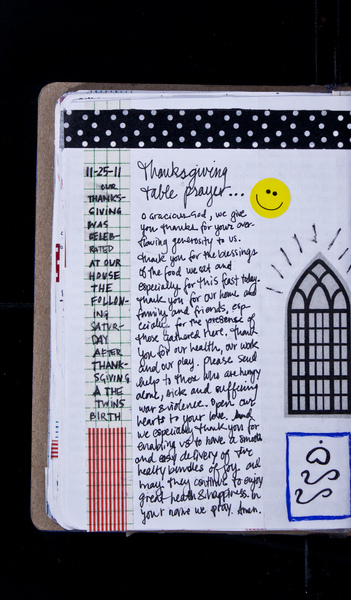 11-25-11
OUR
THANKS-
GIVING
WAS
CELEB-
RATED
AT OUR
HOUSE
THE
FOLLOW-
ING
SATUR-
DAY
AFTER
THANK-
SGIVING
& THE
TWINS
BIRTH
Thanksgiving
table prayer...
O Gracious God, we give
you thanks for your over-
flowing generosity to us.
Thank you for the blessings
of the food we eat and
especially for this feast today.
Thank you for our home and
family and friends, esp-
ecially for the presence of
those gathered here. Thank
you for our health, our work
and our play. Please send
help to those who are hungry
alone, sick and suffering
war & violence. Open our
hearts to your love. And
we especially thank you for
enabling us to have a smooth
and easy delivery of two
healthy bundles of joy. and
may they continue to enjoy
great health & happiness. In
your name we pray. Amen.